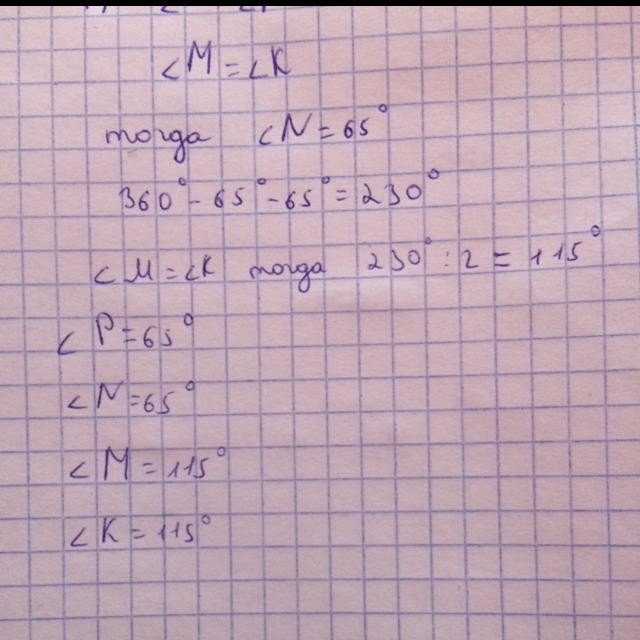 ∠M = ∠K
тогда ∠N = 65°
360° - 65° - 65° = 230°
∠M = ∠K тогда 230° : 2 = 115°
∠P = 65°
∠N = 65°
∠M = 115°
∠K = 115°